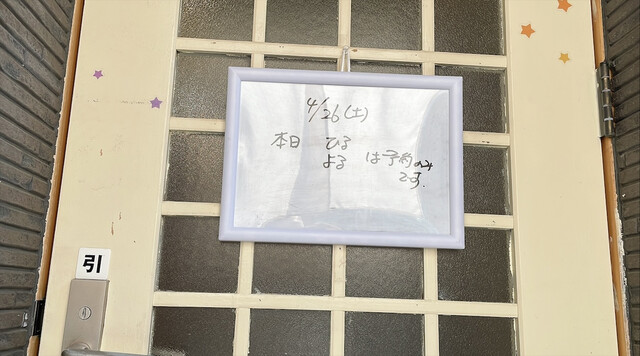 4/26(土)
本日 ひる
よる は予約のみ
です.
引